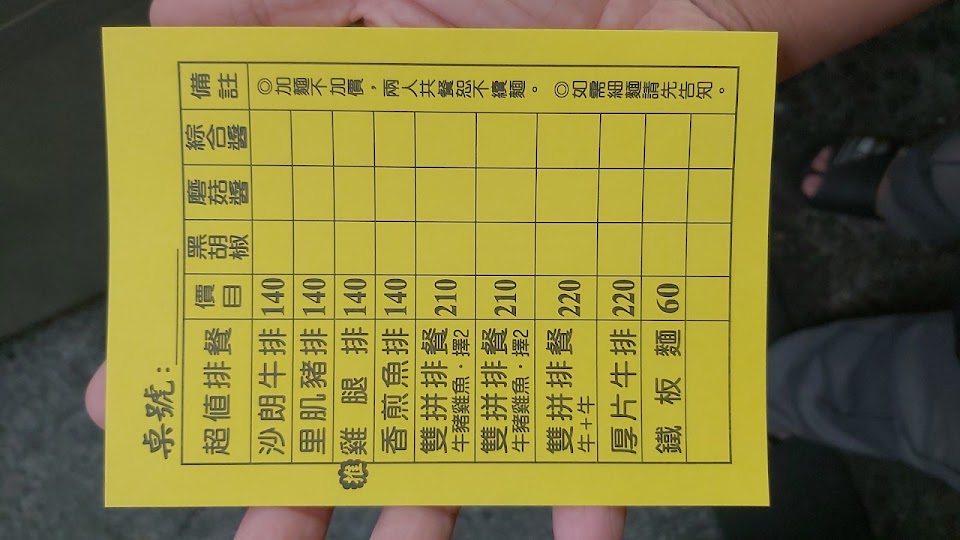 桌號：
超值排餐 價目 黑胡椒 蘑菇醬 綜合醬 備註
沙朗牛排 140
里肌豬排 140
推 雞腿排 140
香煎魚排 140
雙拼排餐 210
牛豬雞魚·擇2
雙拼排餐 210
牛豬雞魚·擇2
雙拼排餐 220
牛+牛
厚片牛排 220
鐵板麵 60
◎加麵不加價，兩人共餐恕不續麵。
◎如需細麵請先告知。